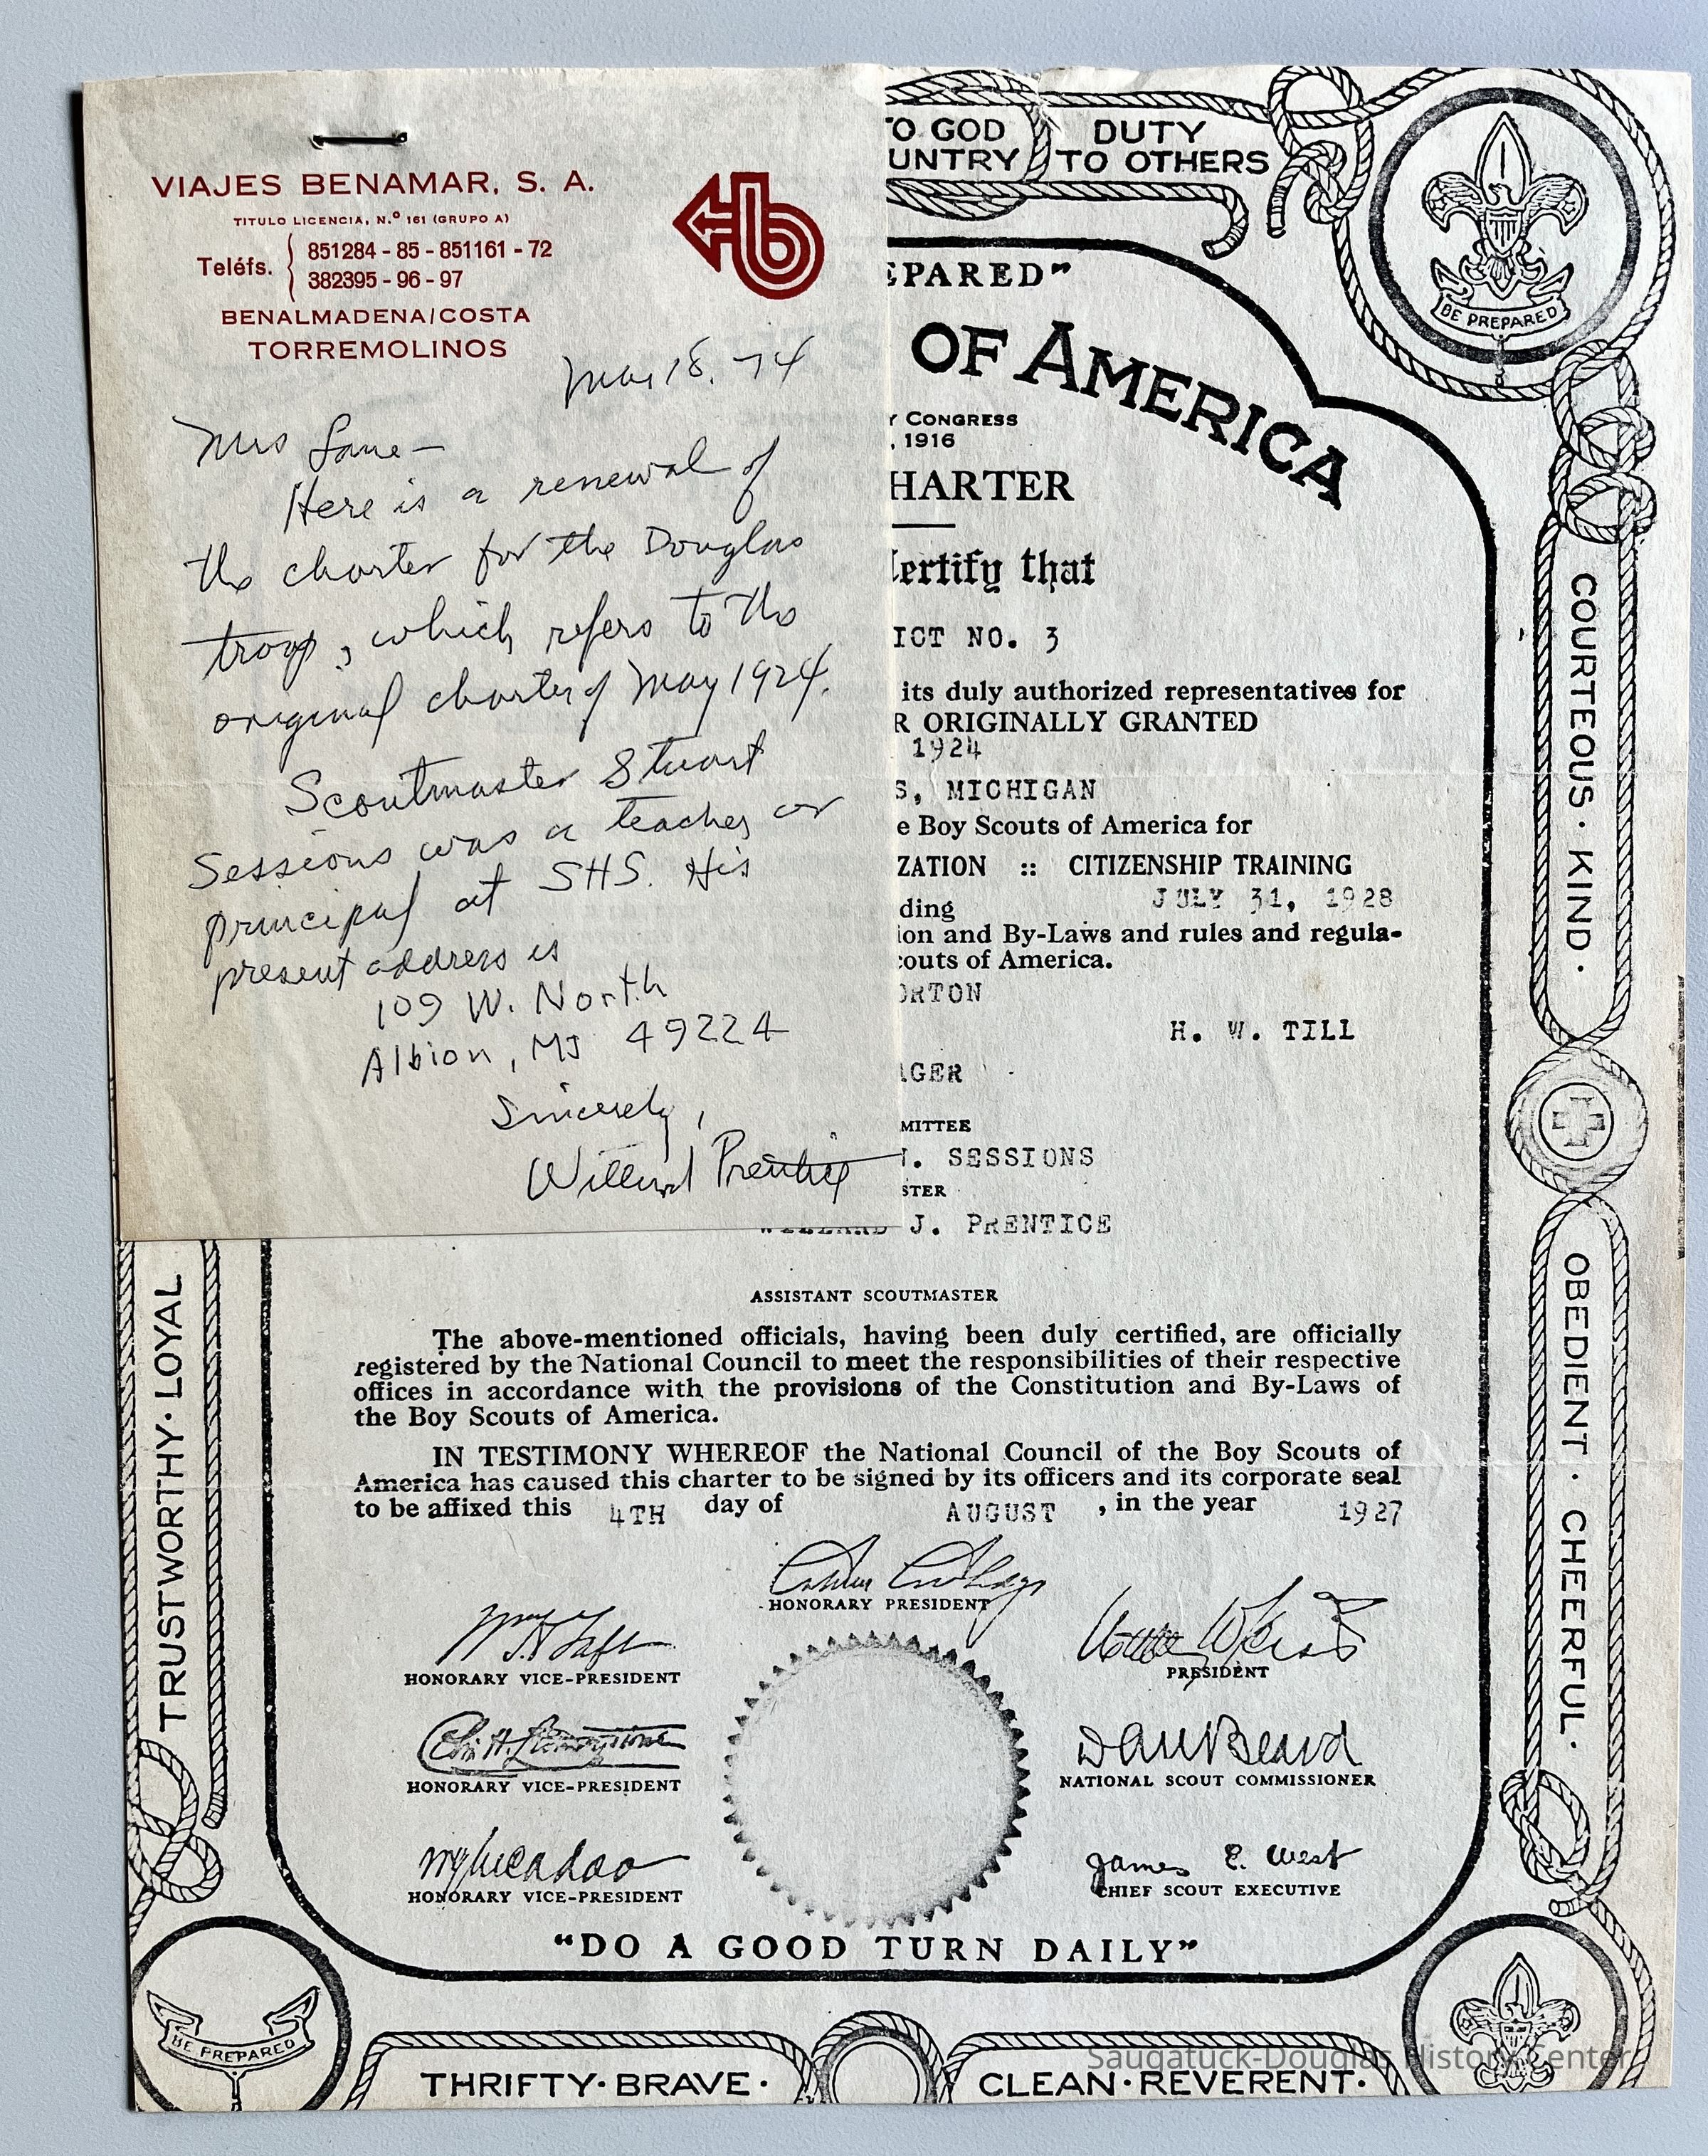 VIAJES BENAMAR, S. A.
TITULO LICENCIA, N.º 161 (GRUPO A)
Teléfs. 851284 - 85 - 851161 - 72
382395 - 96 - 97
BENALMADENA/COSTA
TORREMOLINOS
b
Mar 18. 74
Mrs Lane—
Here is a renewal of
the charter for the Douglas
troop, which refers to the
original charter of May 1924.
Scoutmaster Stuart
Sessions was a teacher or
principal at SHS. His
present address is
109 W. North
Albion, MI 49224
Sincerely,
Willard Prentice
TO GOD
UNTRY
DUTY
TO OTHERS
BE PREPARED
EPARED"
OF AMERICA
Y CONGRESS
, 1916
HARTER
ertify that
ICT NO. 3
its duly authorized representatives for
R ORIGINALLY GRANTED
1924
S, MICHIGAN
e Boy Scouts of America for
ZATION :: CITIZENSHIP TRAINING
ding JULY 31, 1928
ion and By-Laws and rules and regula-
couts of America.
ORTON
H. W. TILL
AGER
MITTEE
N. SESSIONS
STER
WILLARD J. PRENTICE
ASSISTANT SCOUTMASTER
The above-mentioned officials, having been duly certified, are officially
registered by the National Council to meet the responsibilities of their respective
offices in accordance with the provisions of the Constitution and By-Laws of
the Boy Scouts of America.
IN TESTIMONY WHEREOF the National Council of the Boy Scouts of
America has caused this charter to be signed by its officers and its corporate seal
to be affixed this 4TH day of AUGUST , in the year 1927
Calvin Coolidge
HONORARY PRESIDENT
Wm H Taft
HONORARY VICE-PRESIDENT
PRESIDENT
HONORARY VICE-PRESIDENT
Dan Beard
NATIONAL SCOUT COMMISSIONER
W G McAdoo
HONORARY VICE-PRESIDENT
James E. West
CHIEF SCOUT EXECUTIVE
"DO A GOOD TURN DAILY"
TRUSTWORTHY · LOYAL
COURTEOUS · KIND ·
OBEDIENT · CHEERFUL ·
BE PREPARED
THRIFTY · BRAVE ·
CLEAN · REVERENT ·
Saugatuck-Douglas History Center